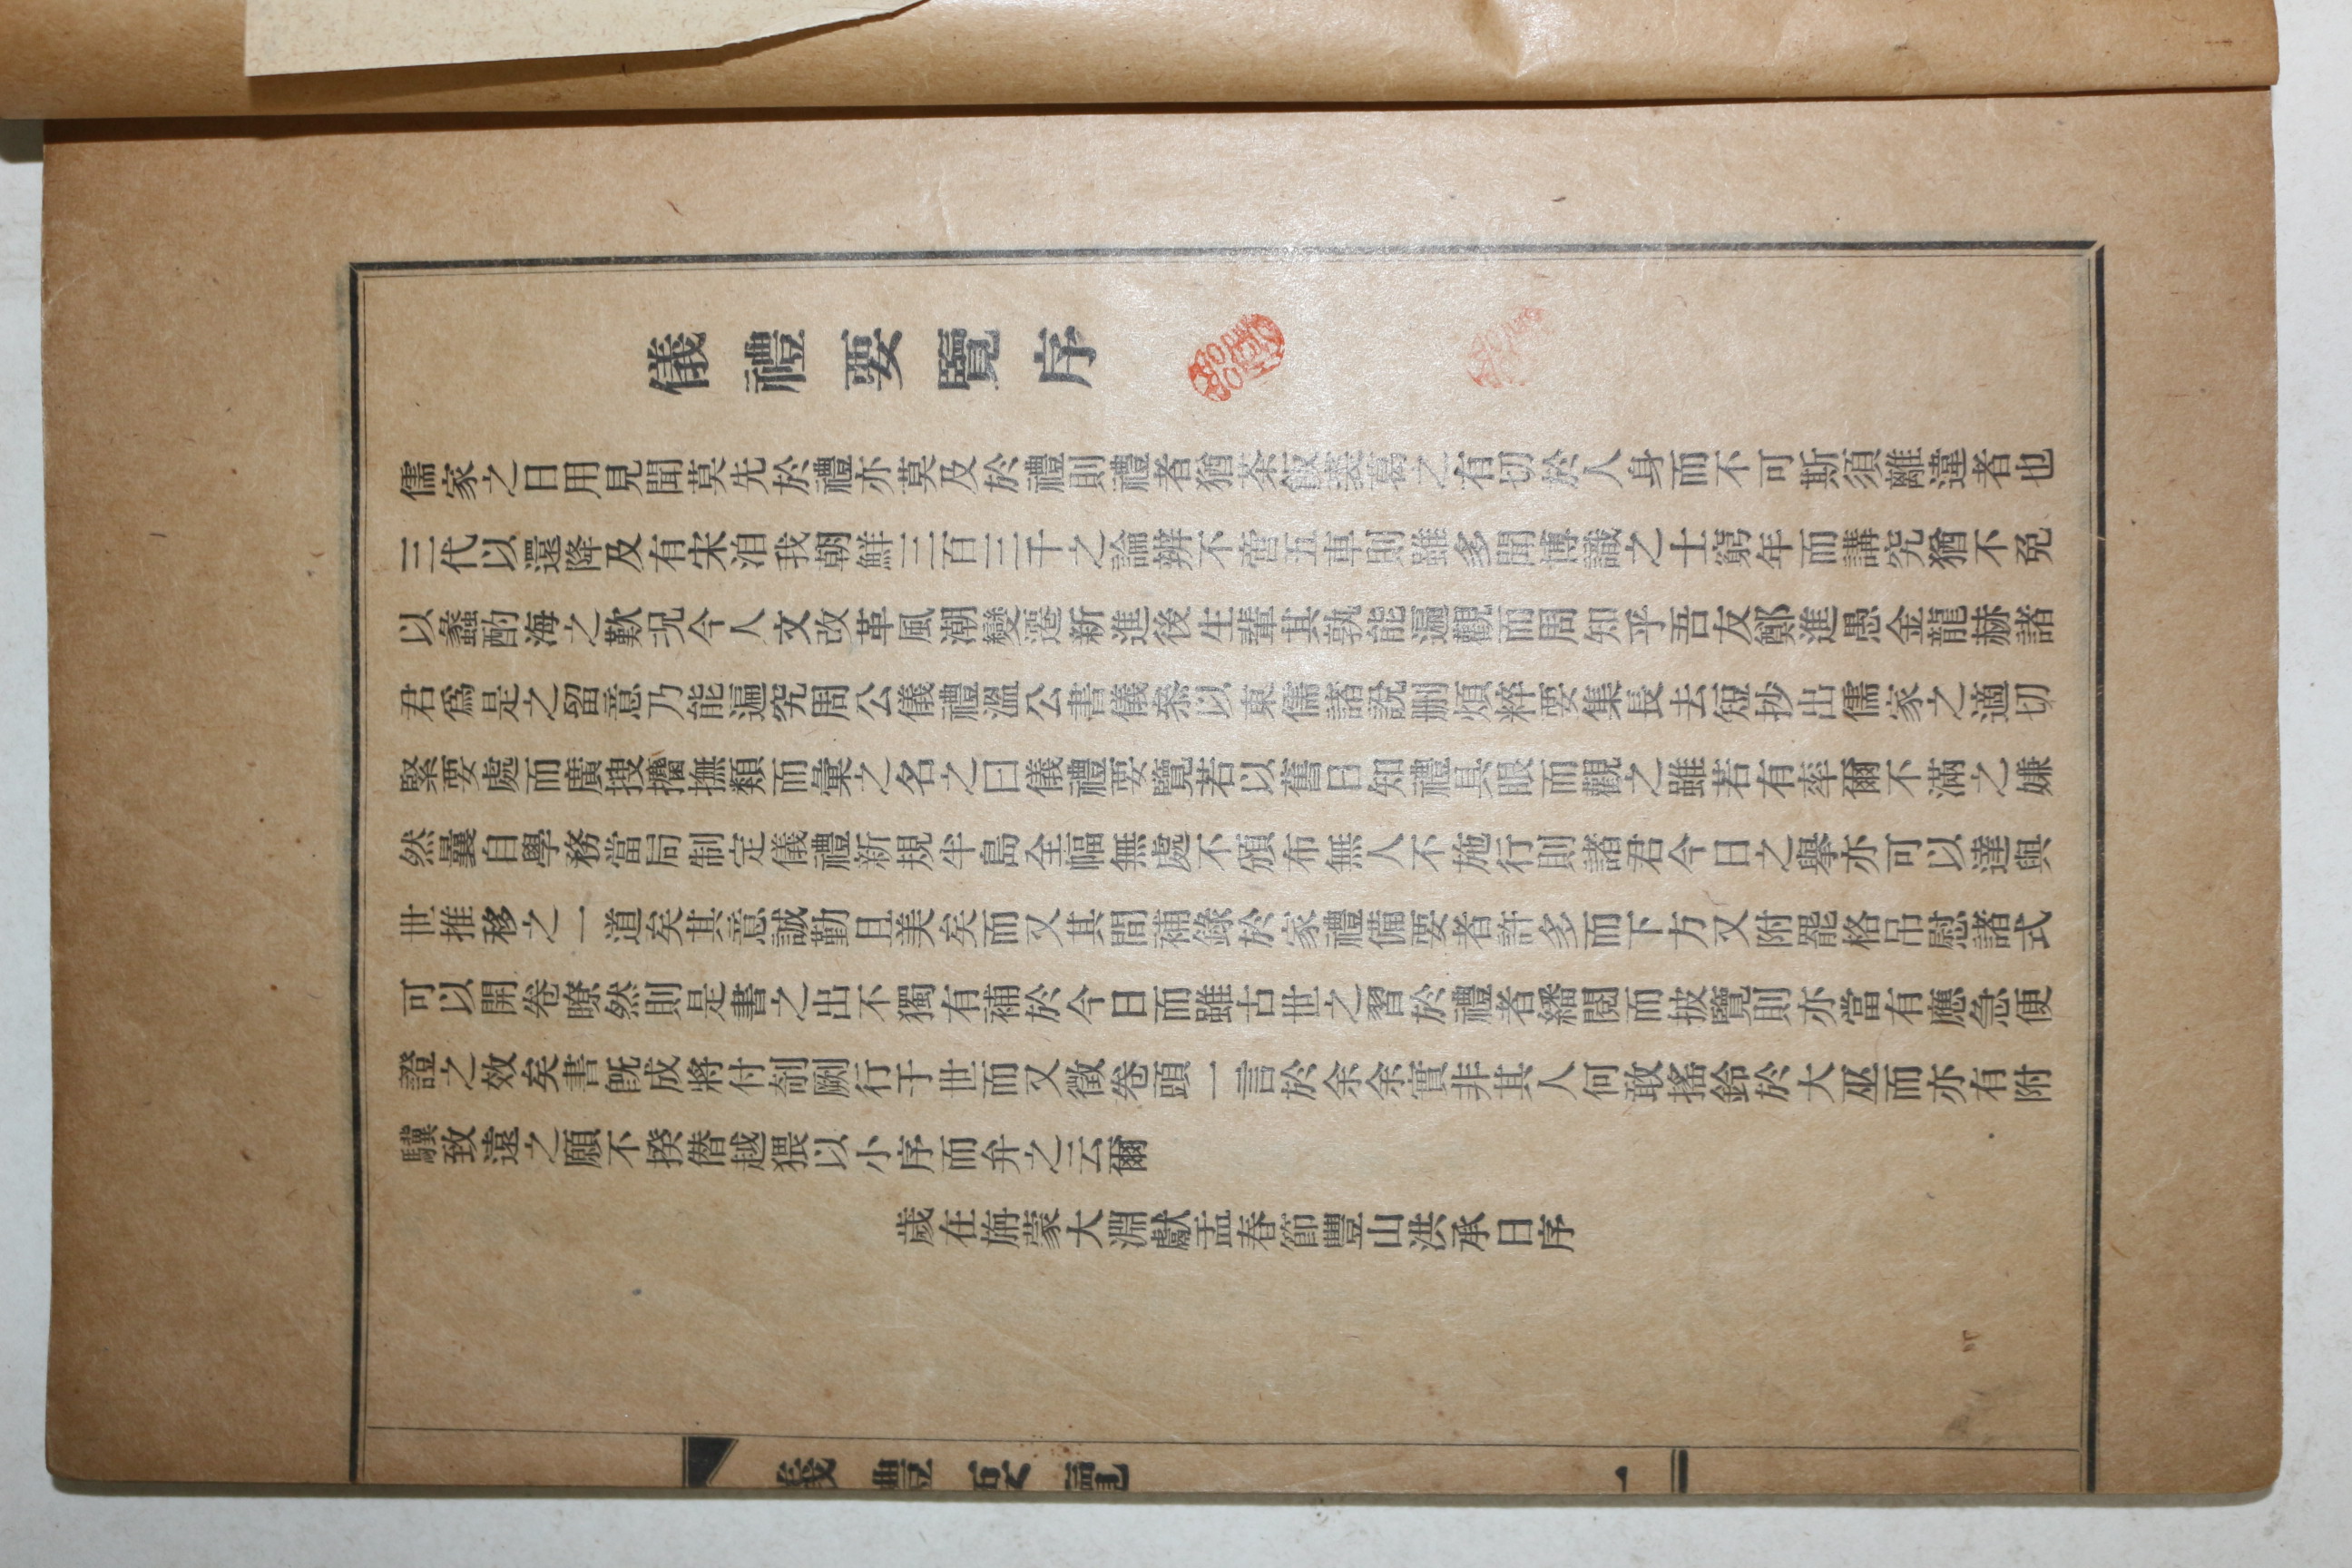 儀禮要覽序
儒家之日用見聞莫先於禮亦莫及於禮則禮者猶茶飯裘葛之有切於人身而不可斯須離違者也
三代以還降及有宋洎我朝鮮三百三千之論辨不啻五車則雖多聞博識之士窮年而講究猶不免
以蠡酌海之歎况今人文改革風潮變遷新進後生輩其孰能遍觀而周知乎吾友鄭進愚金龍赫諸
君爲是之留意乃能遍究周公儀禮溫公書儀叅以東儒諸說刪煩粹要集長去短抄出儒家之適切
緊要處而廣搜攟撫類而彙之名之曰儀禮要覽若以舊日知禮具眼而觀之雖若有率爾不滿之嫌
然曩自學務當局制定儀禮新規半島全幅無處不頒布無人不施行則諸君今日之擧亦可以達與
世推移之一道矣其意誠勤且美矣而又其間補錄於家禮備要者許多而下方又附罷格吊慰諸式
可以開卷瞭然則是書之出不獨有補於今日而雖古世之習於禮者繙閱而披覽則亦當有應急便
證之效矣書旣成將付剞劂行于世而又徵卷頭一言於余余實非其人何敢搖鈴於大巫而亦有附
驥致遠之願不揆僭越猥以小序而弁之云爾
歲在旃蒙大淵獻孟春節豐山洪承日序
儀禮要覽
一